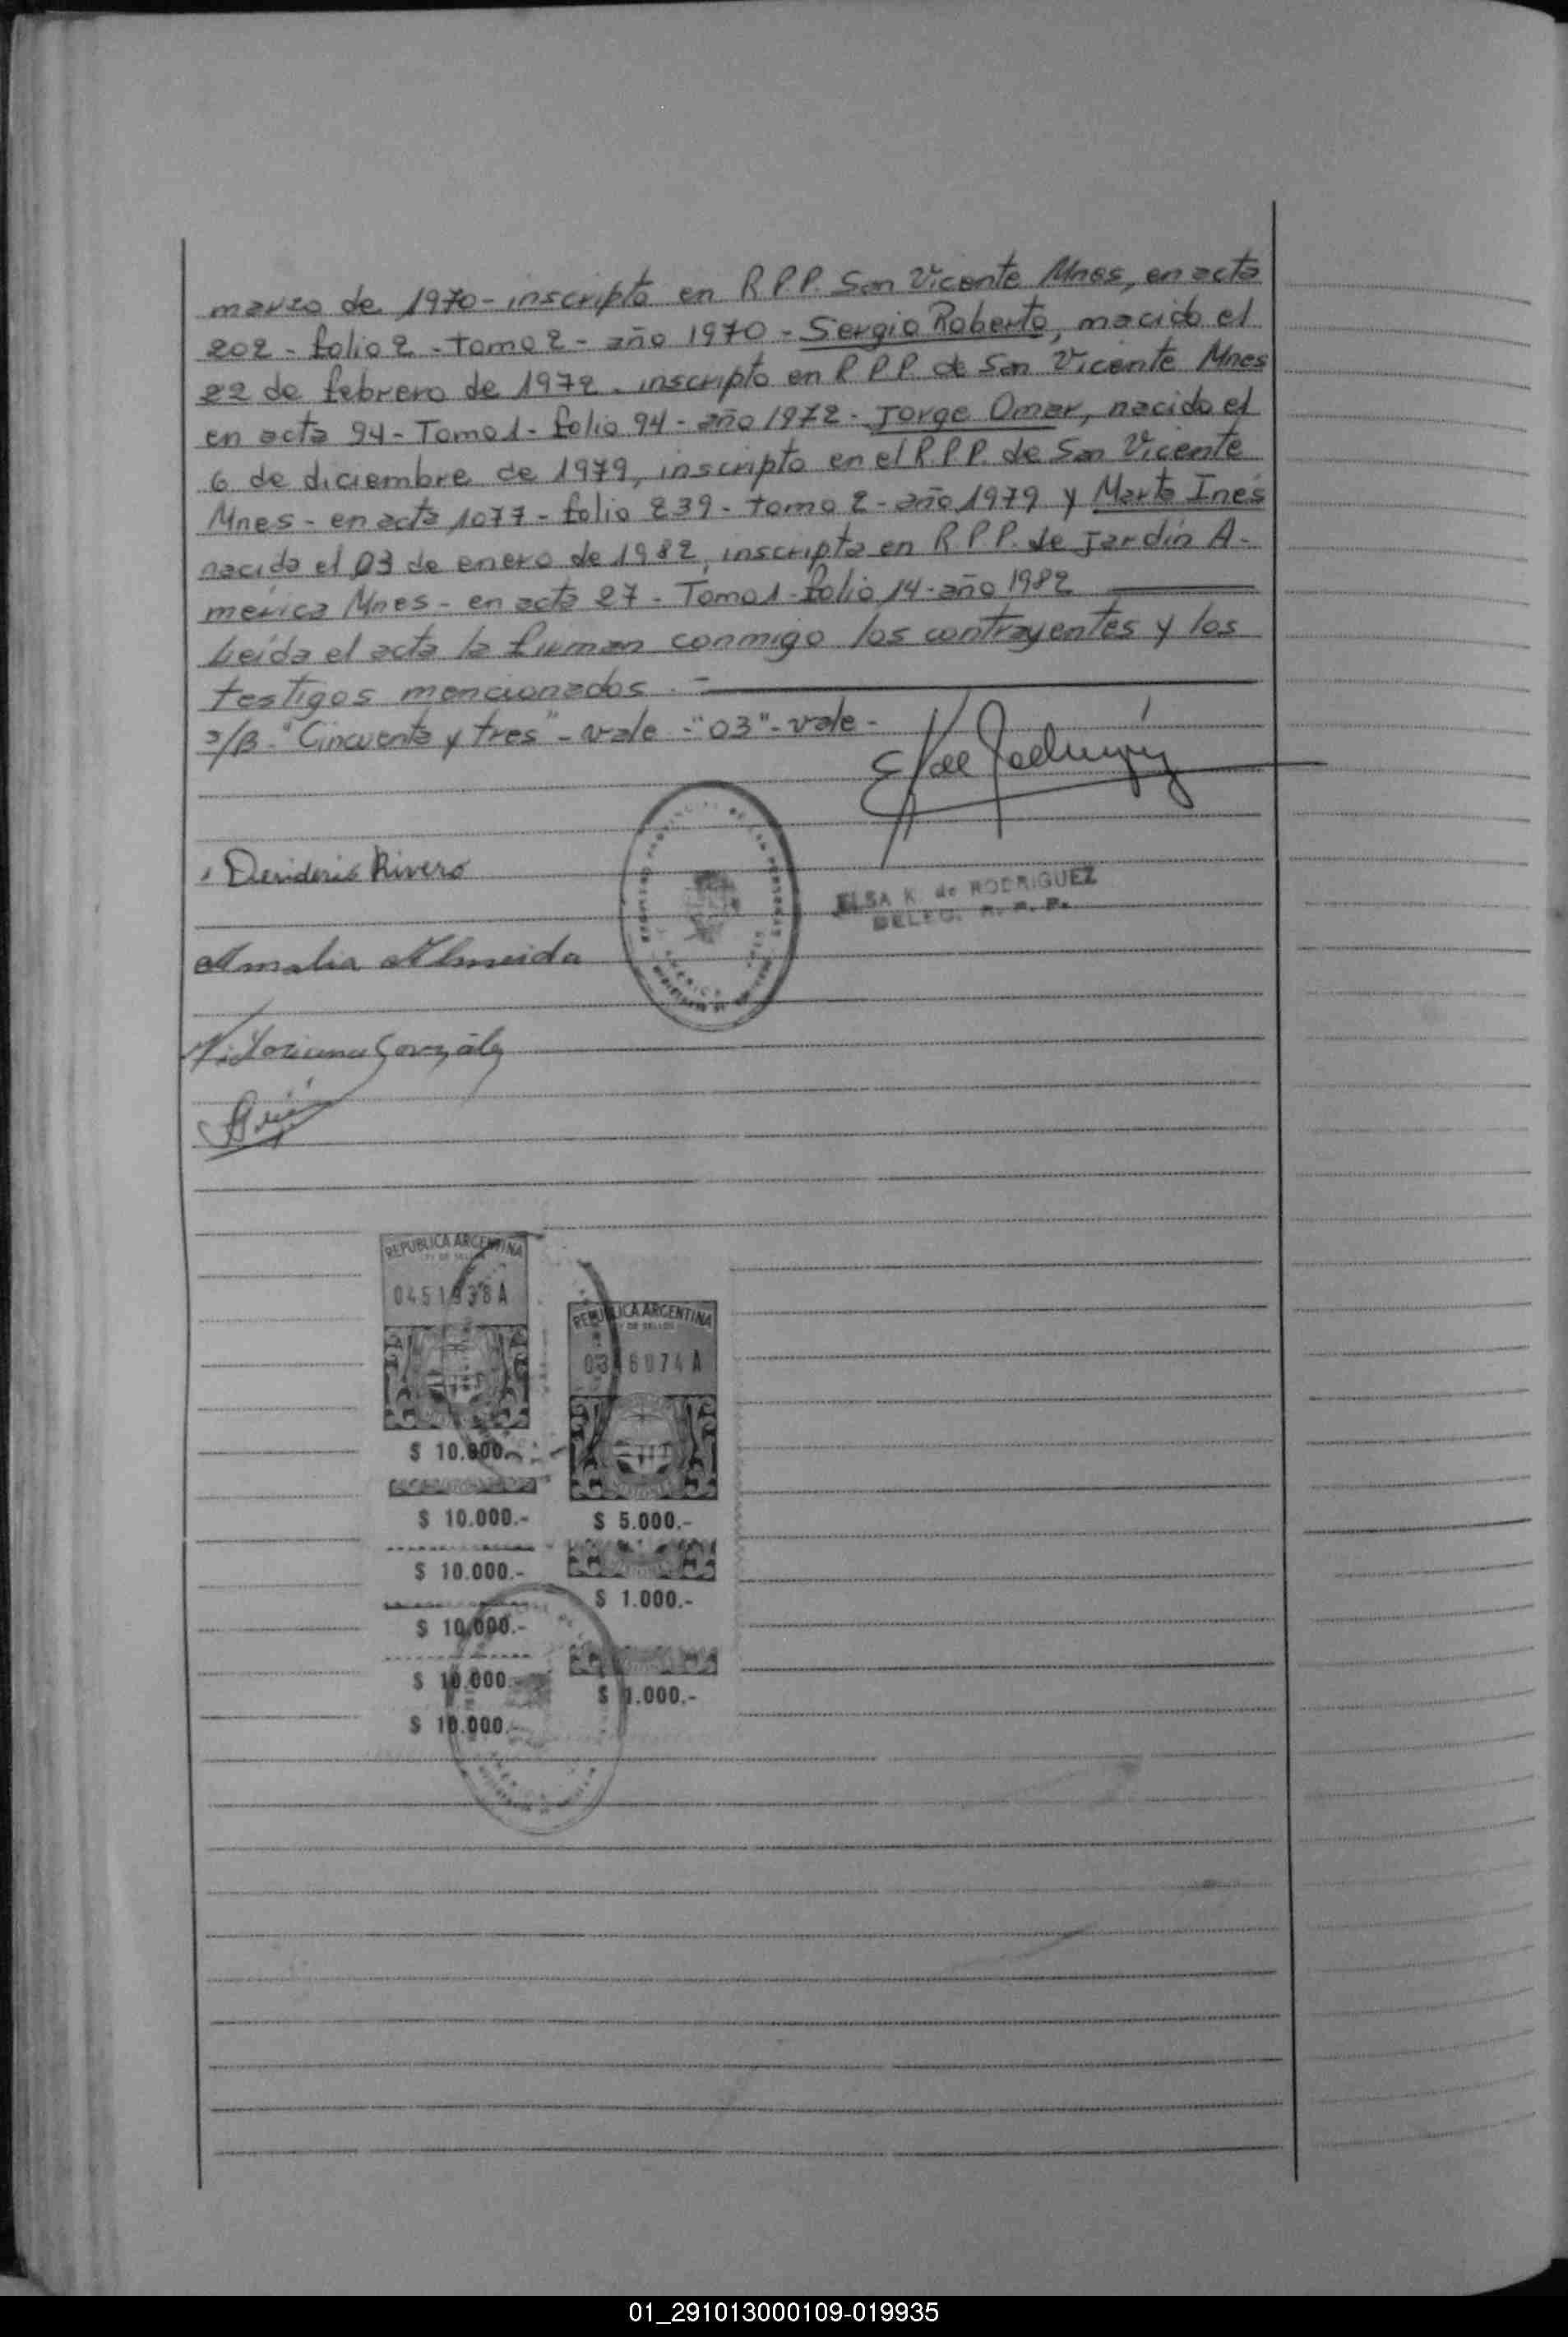 marzo de 1970 - inscripto en R.P.P. San Vicente Mnes, en acta
202 - folio 2 - tomo 2 - año 1970 - Sergio Roberto, nacido el
22 de febrero de 1972 - inscripto en R.P.P. de San Vicente Mnes
en acta 94 - Tomo 1 - folio 94 - año 1972 - Jorge Omar, nacido el
6 de diciembre de 1979, inscripto en el R.P.P. de San Vicente
Mnes - en acta 1077 - folio 239 - tomo 2 - año 1979 y Marta Inés
nacida el 03 de enero de 1982, inscripta en R.P.P. de Jardín A-
mérica Mnes - en acta 27 - Tomo 1 - folio 14 - año 1982
Leída el acta la firman conmigo los contrayentes y los
testigos mencionados. -
s/B - "Cincuenta y tres" - vale - "03" - vale -
Desiderio Rivero
ELSA K. de RODRIGUEZ
DELEG. R. P. P.
Amalia Almeida
Vitoriana González
REPUBLICA ARGENTINA
LEY DE SELLOS
0451938A
$ 10.000.-
$ 10.000.-
$ 10.000.-
$ 10.000.-
$ 10.000.-
$ 10.000.-
REPUBLICA ARGENTINA
LEY DE SELLOS
0346074A
$ 5.000.-
$ 1.000.-
$ 1.000.-
01_291013000109-019935